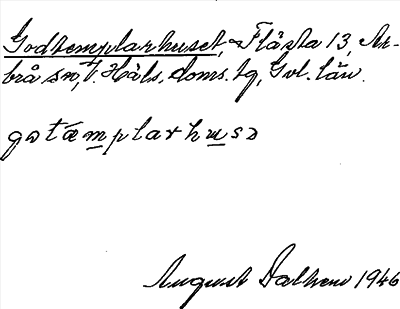 Godtemplarhuset, Flästa 13, Ar-
brå sn, V. Häls. doms. tg, Gvl. län.
gotämplarhusə
August Dalhem 1946